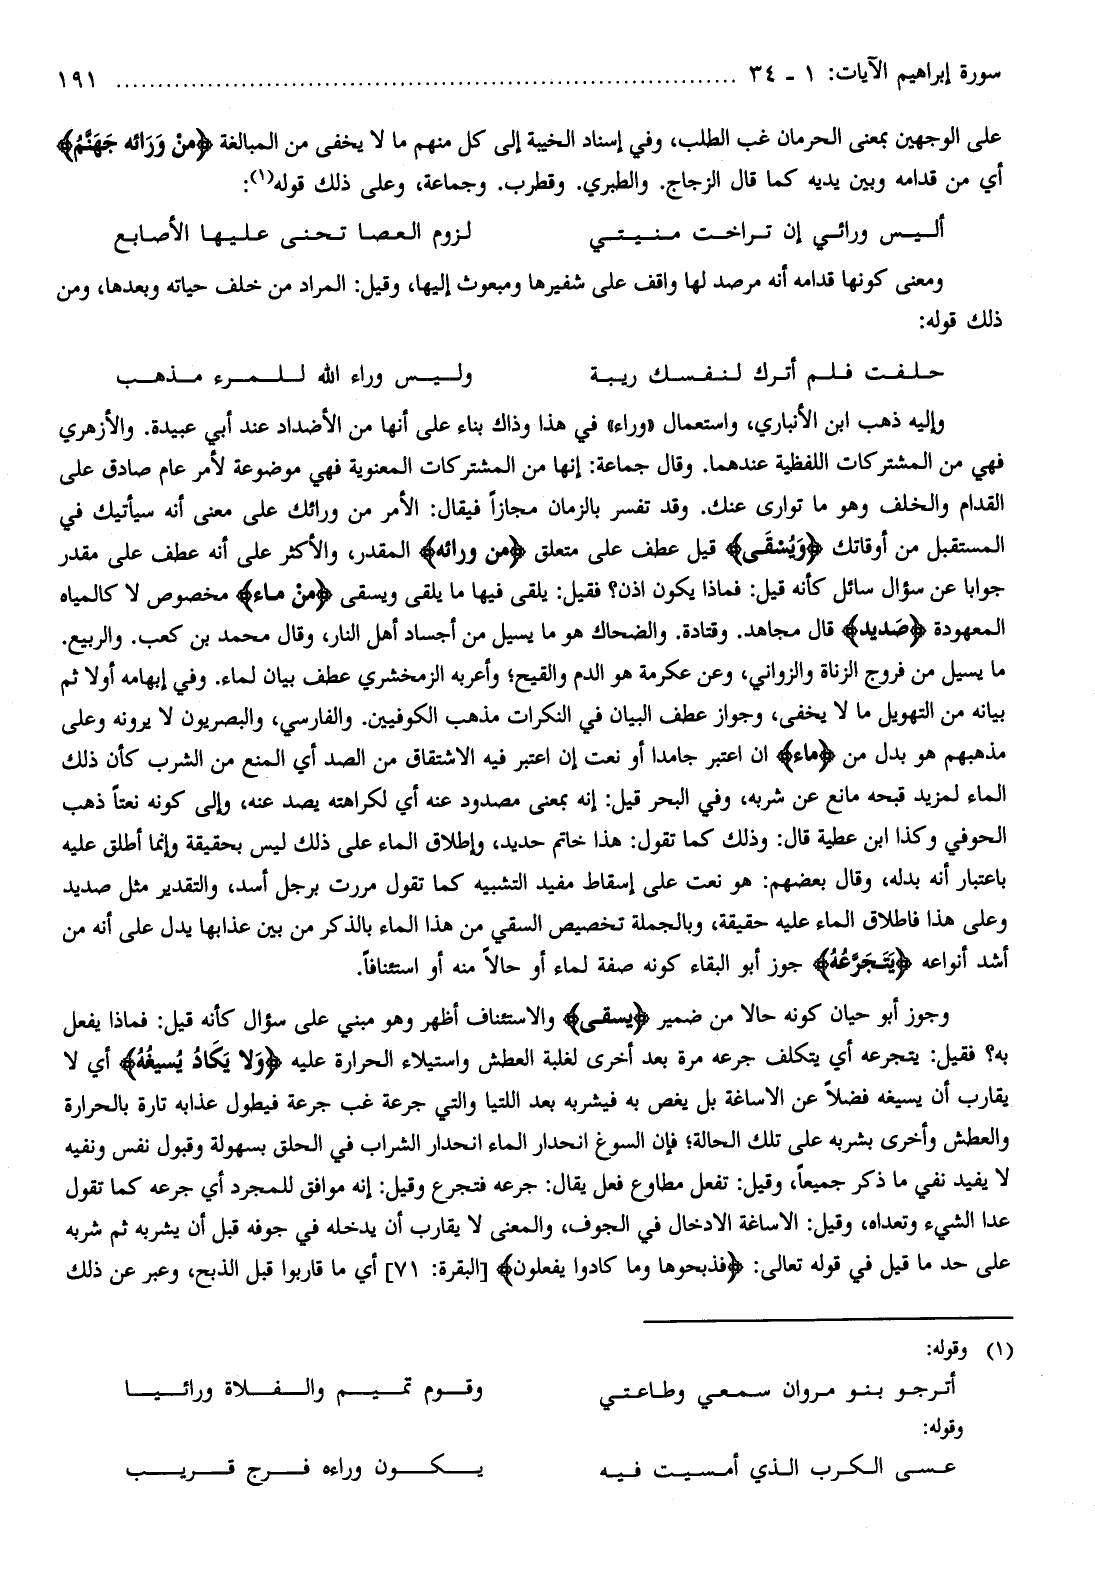 سورة إبراهيم الآيات: ١ - ٣٤ ........................................................................... ١٩١
على الوجهين بمعنى الحرمان غب الطلب، وفي إسناد الخيبة إلى كل منهم ما لا يخفى من المبالغة ﴿مِنْ وَرَائه جَهَنَّمُ﴾
أي من قدامه وبين يديه كما قال الزجاج. والطبري. وقطرب. وجماعة، وعلى ذلك قوله(١):
أليس ورائي إن تراخت منيتي لزوم العصا تحنى عليها الأصابع
ومعنى كونها قدامه أنه مرصد لها واقف على شفيرها ومبعوث إليها، وقيل: المراد من خلف حياته وبعدها، ومن
ذلك قوله:
حلفت فلم أترك لنفسك ريبة وليس وراء الله للمرء مذهب
وإليه ذهب ابن الأنباري، واستعمال «وراء» في هذا وذاك بناء على أنها من الأضداد عند أبي عبيدة. والأزهري
فهي من المشتركات اللفظية عندهما. وقال جماعة: إنها من المشتركات المعنوية فهي موضوعة لأمر عام صادق على
القدام والخلف وهو ما توارى عنك. وقد تفسر بالزمان مجازاً فيقال: الأمر من ورائك على معنى أنه سيأتيك في
المستقبل من أوقاتك ﴿وَيُسْقَى﴾ قيل عطف على متعلق ﴿من ورائه﴾ المقدر، والأكثر على أنه عطف على مقدر
جوابا عن سؤال سائل كأنه قيل: فماذا يكون اذن؟ فقيل: يلقى فيها ما يلقى ويسقى ﴿مِنْ ماء﴾ مخصوص لا كالمياه
المعهودة ﴿صَديد﴾ قال مجاهد. وقتادة. والضحاك هو ما يسيل من أجساد أهل النار، وقال محمد بن كعب. والربيع.
ما يسيل من فروج الزناة والزواني، وعن عكرمة هو الدم والقيح؛ وأعربه الزمخشري عطف بيان لماء. وفي إبهامه أولا ثم
بيانه من التهويل ما لا يخفى، وجواز عطف البيان في النكرات مذهب الكوفيين. والفارسي، والبصريون لا يرونه وعلى
مذهبهم هو بدل من ﴿ماء﴾ ان اعتبر جامدا أو نعت إن اعتبر فيه الاشتقاق من الصد أي المنع من الشرب كأن ذلك
الماء لمزيد قبحه مانع عن شربه، وفي البحر قيل: إنه بمعنى مصدود عنه أي لكراهته يصد عنه، وإلى كونه نعتاً ذهب
الحوفي وكذا ابن عطية قال: وذلك كما تقول: هذا خاتم حديد، وإطلاق الماء على ذلك ليس بحقيقة وإنما أطلق عليه
باعتبار أنه بدله، وقال بعضهم: هو نعت على إسقاط مفيد التشبيه كما تقول مررت برجل أسد، والتقدير مثل صديد
وعلى هذا فاطلاق الماء عليه حقيقة، وبالجملة تخصيص السقي من هذا الماء بالذكر من بين عذابها يدل على أنه من
أشد أنواعه ﴿يَتَجَرَّعُهُ﴾ جوز أبو البقاء كونه صفة لماء أو حالاً منه أو استئنافاً.
وجوز أبو حيان كونه حالا من ضمير ﴿يسقى﴾ والاستئناف أظهر وهو مبني على سؤال كأنه قيل: فماذا يفعل
به؟ فقيل: يتجرعه أي يتكلف جرعه مرة بعد أخرى لغلبة العطش واستيلاء الحرارة عليه ﴿وَلا يَكَادُ يُسيغُهُ﴾ أي لا
يقارب أن يسيغه فضلاً عن الاساغة بل يغص به فيشربه بعد اللتيا والتي جرعة غب جرعة فيطول عذابه تارة بالحرارة
والعطش وأخرى بشربه على تلك الحالة؛ فإن السوغ انحدار الماء انحدار الشراب في الحلق بسهولة وقبول نفس ونفيه
لا يفيد نفي ما ذكر جميعاً، وقيل: تفعل مطاوع فعل يقال: جرعه فتجرع وقيل: إنه موافق للمجرد أي جرعه كما تقول
عدا الشيء وتعداه، وقيل: الاساغة الادخال في الجوف، والمعنى لا يقارب أن يدخله في جوفه قبل أن يشربه ثم شربه
على حد ما قيل في قوله تعالى: ﴿فذبحوها وما كادوا يفعلون﴾ [البقرة: ٧١] أي ما قاربوا قبل الذبح، وعبر عن ذلك
(١) وقوله:
أترجو بنو مروان سمعي وطاعتي وقوم تميم والفلاة ورائيا
وقوله:
عسى الكرب الذي أمسيت فيه يكون وراءه فرج قريب